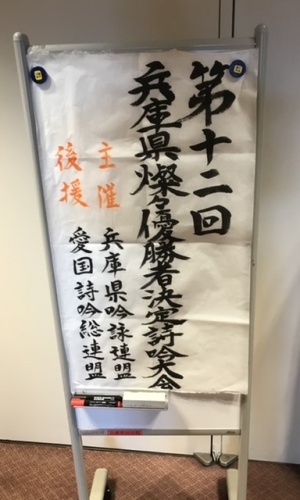 第十二回
兵庫県燦々優勝者決定詩吟大会
主催 兵庫県吟詠連盟
後援 愛国詩吟総連盟